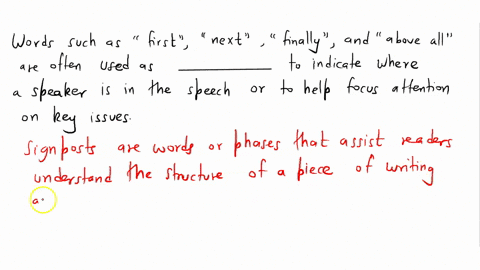 Words such as "first", "next", "finally", and "above all"
are often used as __________ to indicate where
a speaker is in the speech or to help focus attention
on key issues.
Signposts are words or phases that assist readers
understand the structure of a piece of writing
a